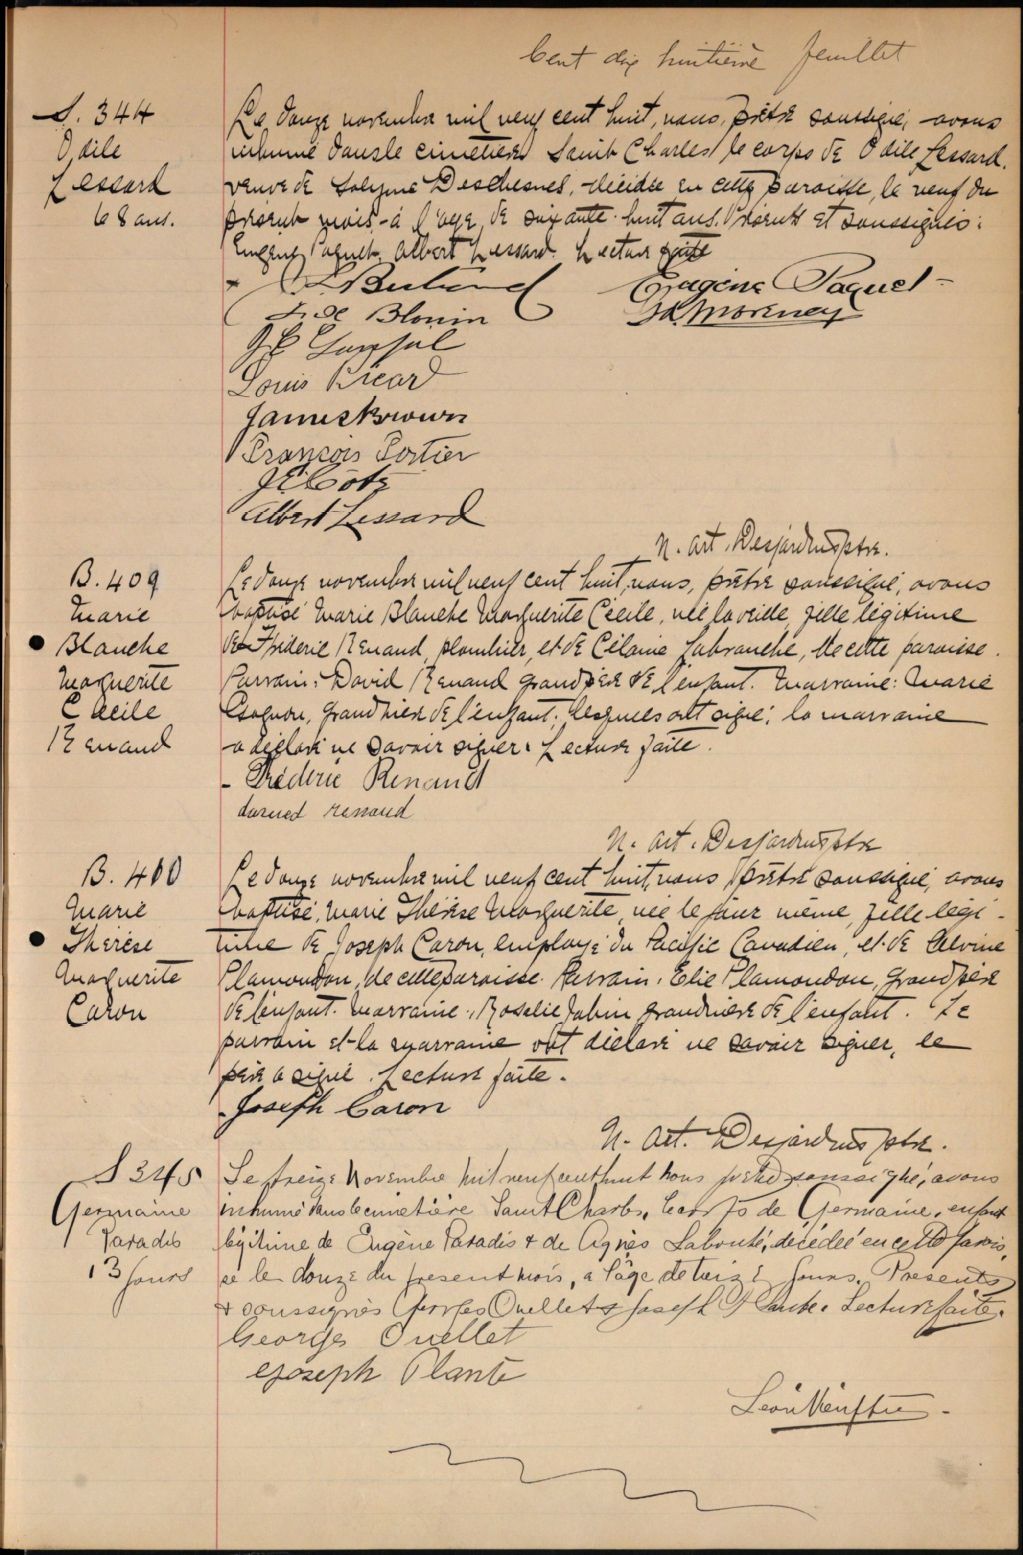 Cent dix huitième feuillet
S. 344
Odile
Lessard
68 ans.
Le douze novembre mil neuf cent huit, nous, prêtre soussigné, avons
inhumé dans le cimetière Saint Charles le corps de Odile Lessard,
veuve de Solyme Deschesnes, décédée en cette paroisse, le neuf du
présent mois, à l'age de soixante-huit ans. Présents et soussignés:
Eugène Paquet, Albert Lessard. Lecture faite
Eugène Paquet
Blouin
Louis Picard
James Brown
François Portier
J E Coté
Albert Lessard
N. Art. Desjardins ptre.
B. 409
Marie
Blanche
Marguerite
Cécile
Renaud
Le douze novembre mil neuf cent huit, nous, prêtre soussigné, avons
baptisé Marie Blanche Marguerite Cécile, née la veille, fille légitime
de Fréderic Renaud, plombier, et de Célanie Labranche, de cette paroisse.
Parrain: David Renaud grand père de l'enfant. Marraine: Marie
Gagnon, grand'mère de l'enfant; lesquels ont signé; la marraine
a déclaré ne savoir signer. Lecture faite.
Fréderic Renaud
renaud
N. Art. Desjardins ptre
B. 410
Marie
Thérèse
Marguerite
Caron
Le douze novembre mil neuf cent huit, nous prêtre soussigné, avons
baptisé, Marie Thérèse Marguerite, née le jour même, fille légi-
time de Joseph Caron, employé du Pacific Canadien, et de Alvine
Plamondon, de cette paroisse. Parrain: Elie Plamondon, grand père
de l'enfant. Marraine: Rosalie grandmère de l'enfant. Le
parrain et la marraine ont déclaré ne savoir signer, le
père a signé. Lecture faite.
Joseph Caron
N. Art. Desjardins ptre.
S 345
Germaine
Paradis
13 jours
Le treize Novembre mil neuf cent huit nous prêtre soussigné, avons
inhumé dans le cimetière Saint Charles, le corps de Germaine, enfant
légitime de Eugène Paradis & de Agnès Labonté, décédée en cette parois,
se le douze du present mois, a l'âge de treize jours. Presents
& soussignés Georges Ouellet & Joseph Plante. Lecture faite.
Georges Ouellet
Joseph Plante